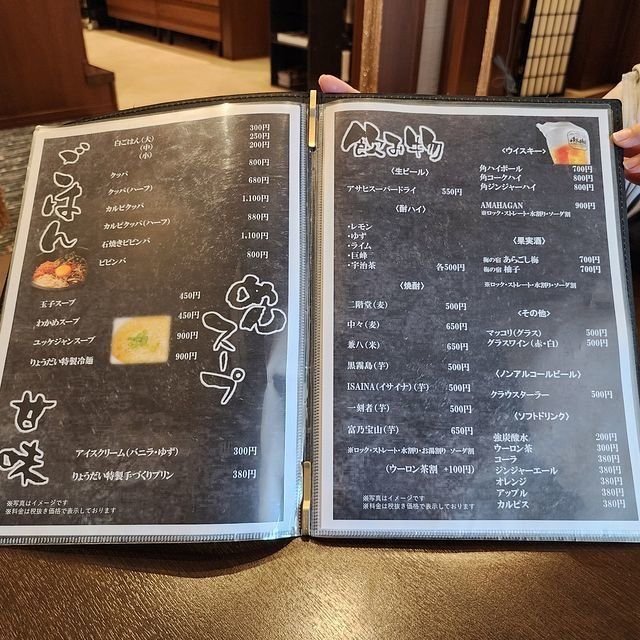 ごはん
白ごはん(大) 300円
(中) 250円
(小) 200円
クッパ 800円
クッパ(ハーフ) 680円
カルビクッパ 1,100円
カルビクッパ(ハーフ) 880円
石焼きビビンバ 1,100円
ビビンバ 800円
めん スープ
玉子スープ 450円
わかめスープ 450円
ユッケジャンスープ 900円
りょうだい特製冷麺 900円
甘味
アイスクリーム(バニラ・ゆず) 300円
りょうだい特製手づくりプリン 380円
※写真はイメージです
※料金は税抜き価格で表示しております
飲み物
〈生ビール〉
アサヒスーパードライ 550円
〈酎ハイ〉
・レモン
・ゆず
・ライム
・巨峰
・宇治茶 各500円
〈焼酎〉
二階堂(麦) 500円
中々(麦) 650円
兼八(米) 650円
黒霧島(芋) 500円
ISAINA(イサイナ)(芋) 500円
一刻者(芋) 500円
富乃宝山(芋) 650円
※ロック・ストレート・水割り・お湯割り・ソーダ割
(ウーロン茶割 +100円)
※写真はイメージです
※料金は税抜き価格で表示しております
〈ウイスキー〉
角ハイボール 700円
角コークハイ 800円
角ジンジャーハイ 800円
AMAHAGAN 900円
※ロック・ストレート・水割り・ソーダ割
〈果実酒〉
梅の宿 あらごし梅 700円
梅の宿 柚子 700円
※ロック・ストレート・水割り・ソーダ割
〈その他〉
マッコリ(グラス) 500円
グラスワイン(赤・白) 500円
〈ノンアルコールビール〉
クラウスターラー 500円
〈ソフトドリンク〉
強炭酸水 200円
ウーロン茶 300円
コーラ 380円
ジンジャーエール 380円
オレンジ 380円
アップル 380円
カルピス 380円